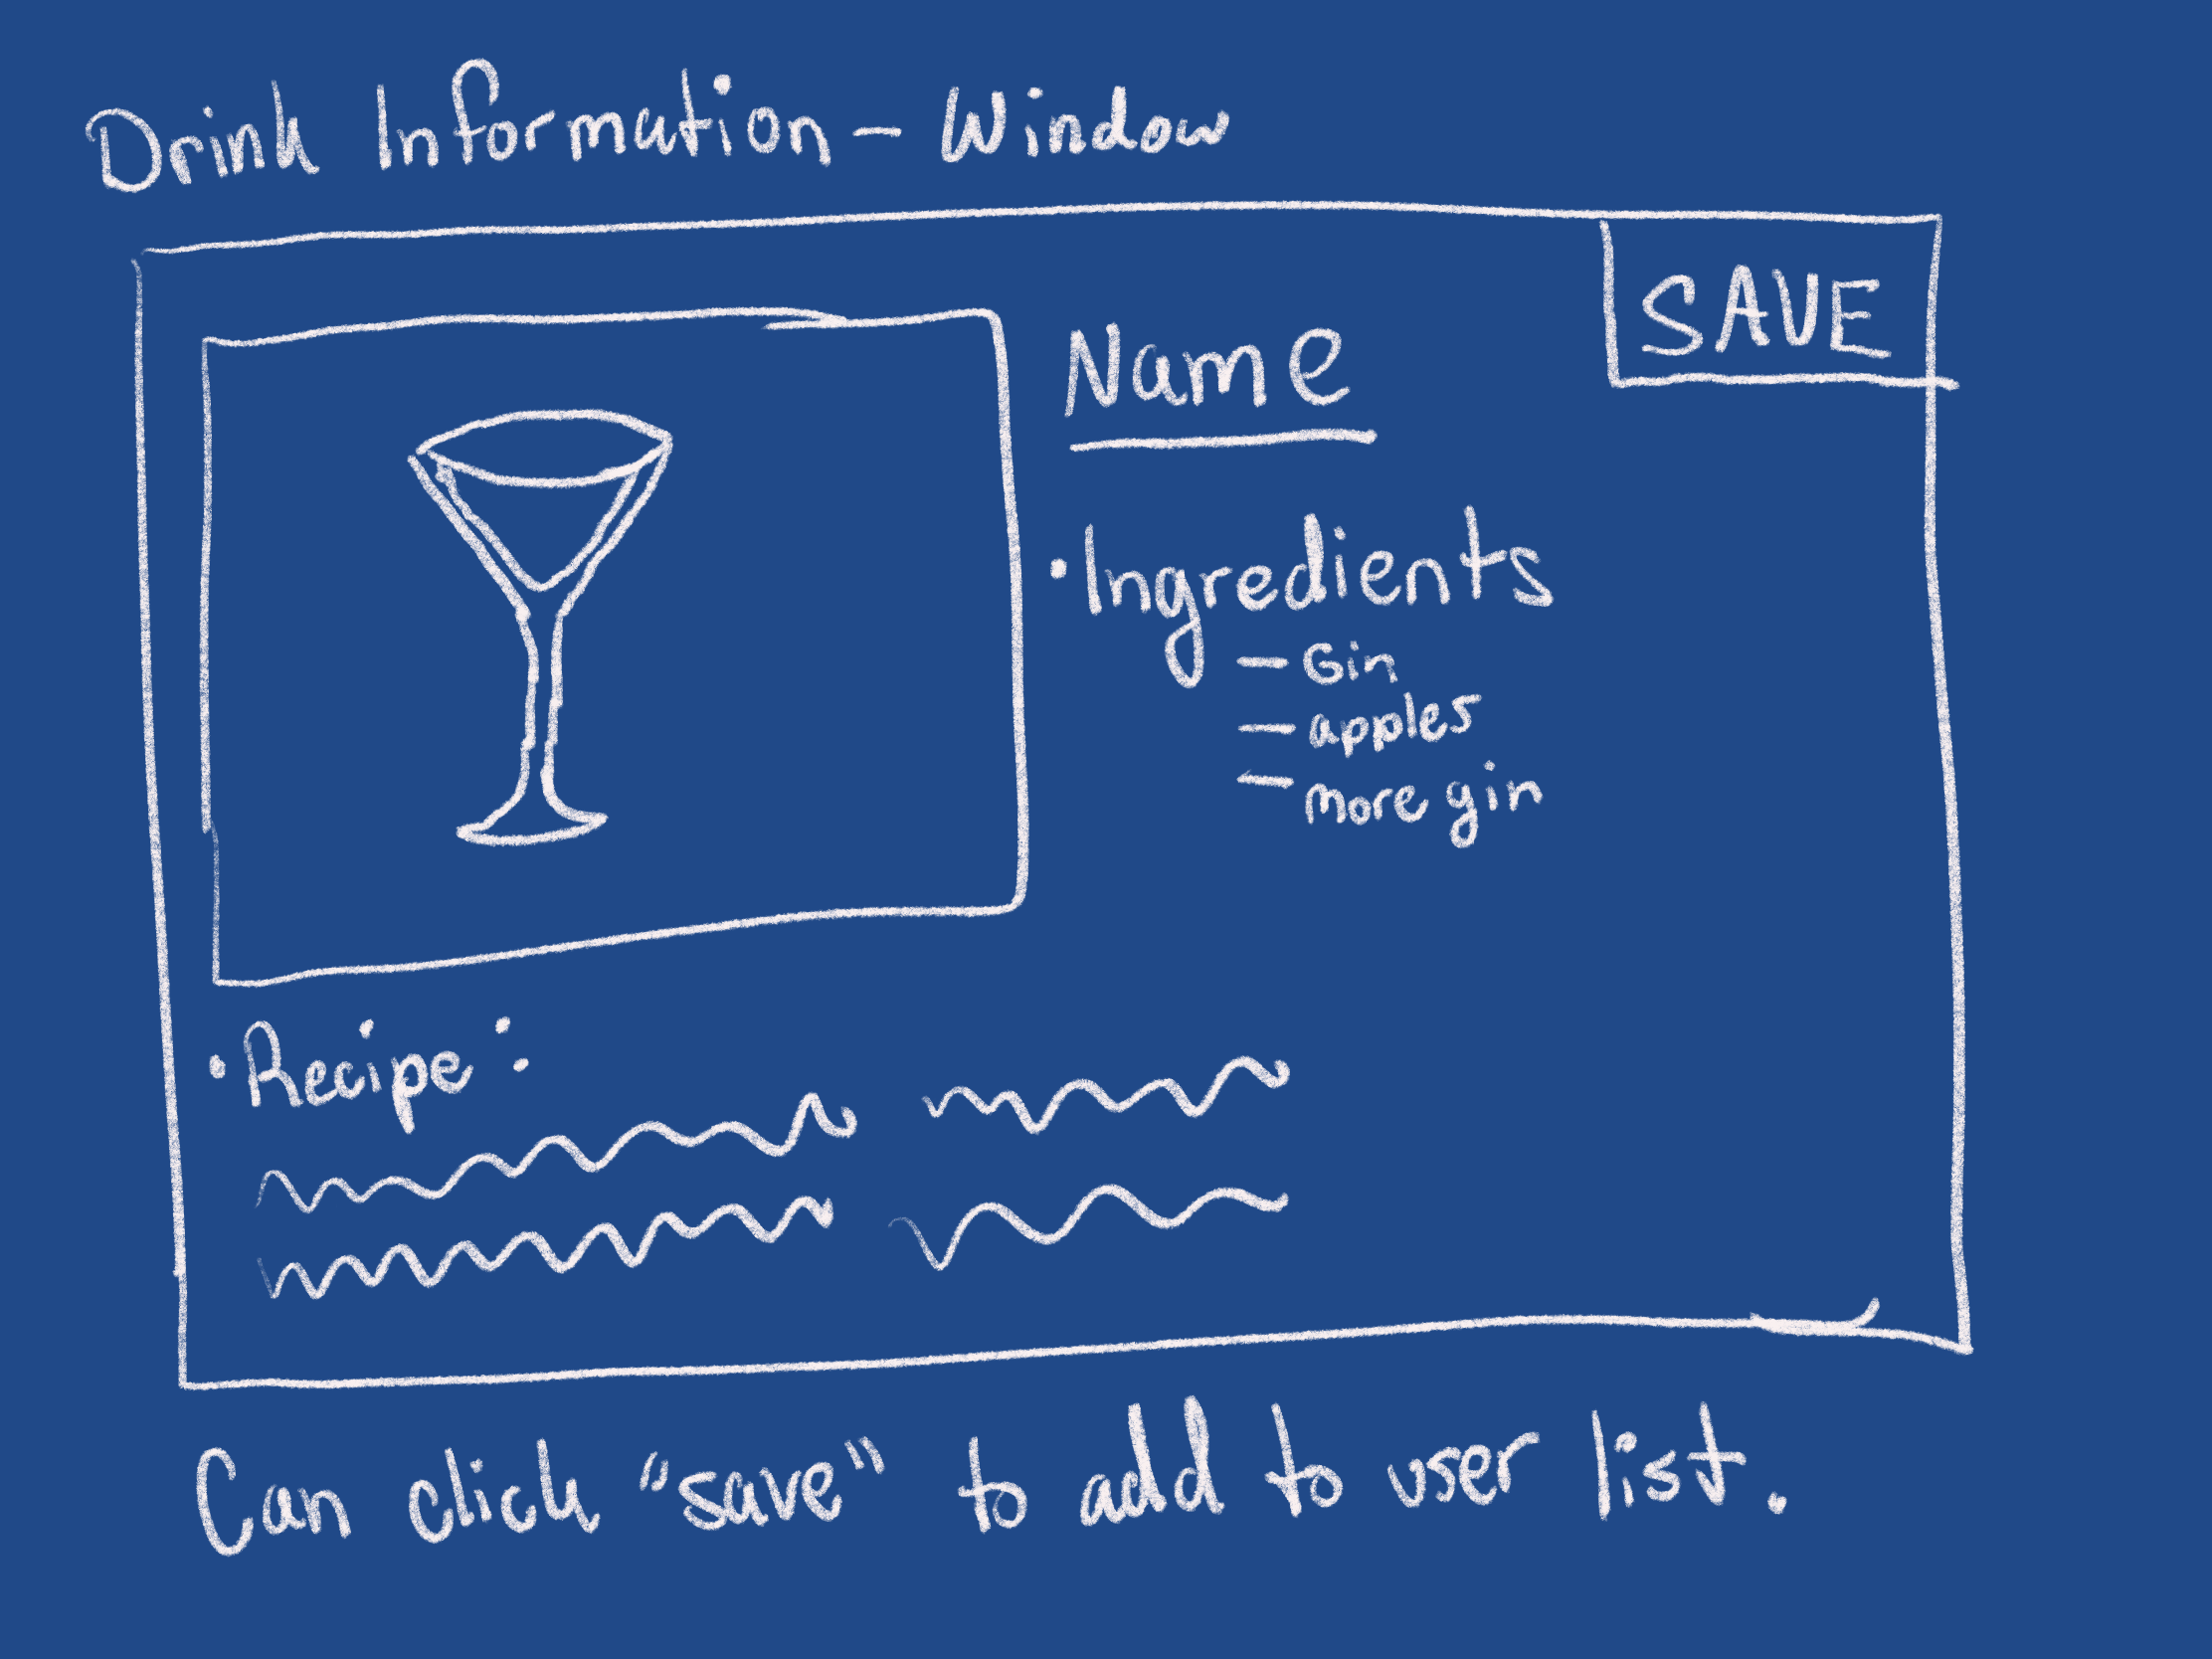 Drink Information - Window
SAVE
Name
• Ingredients
- Gin
- apples
- more gin
• Recipe:
Can click "save" to add to user list.